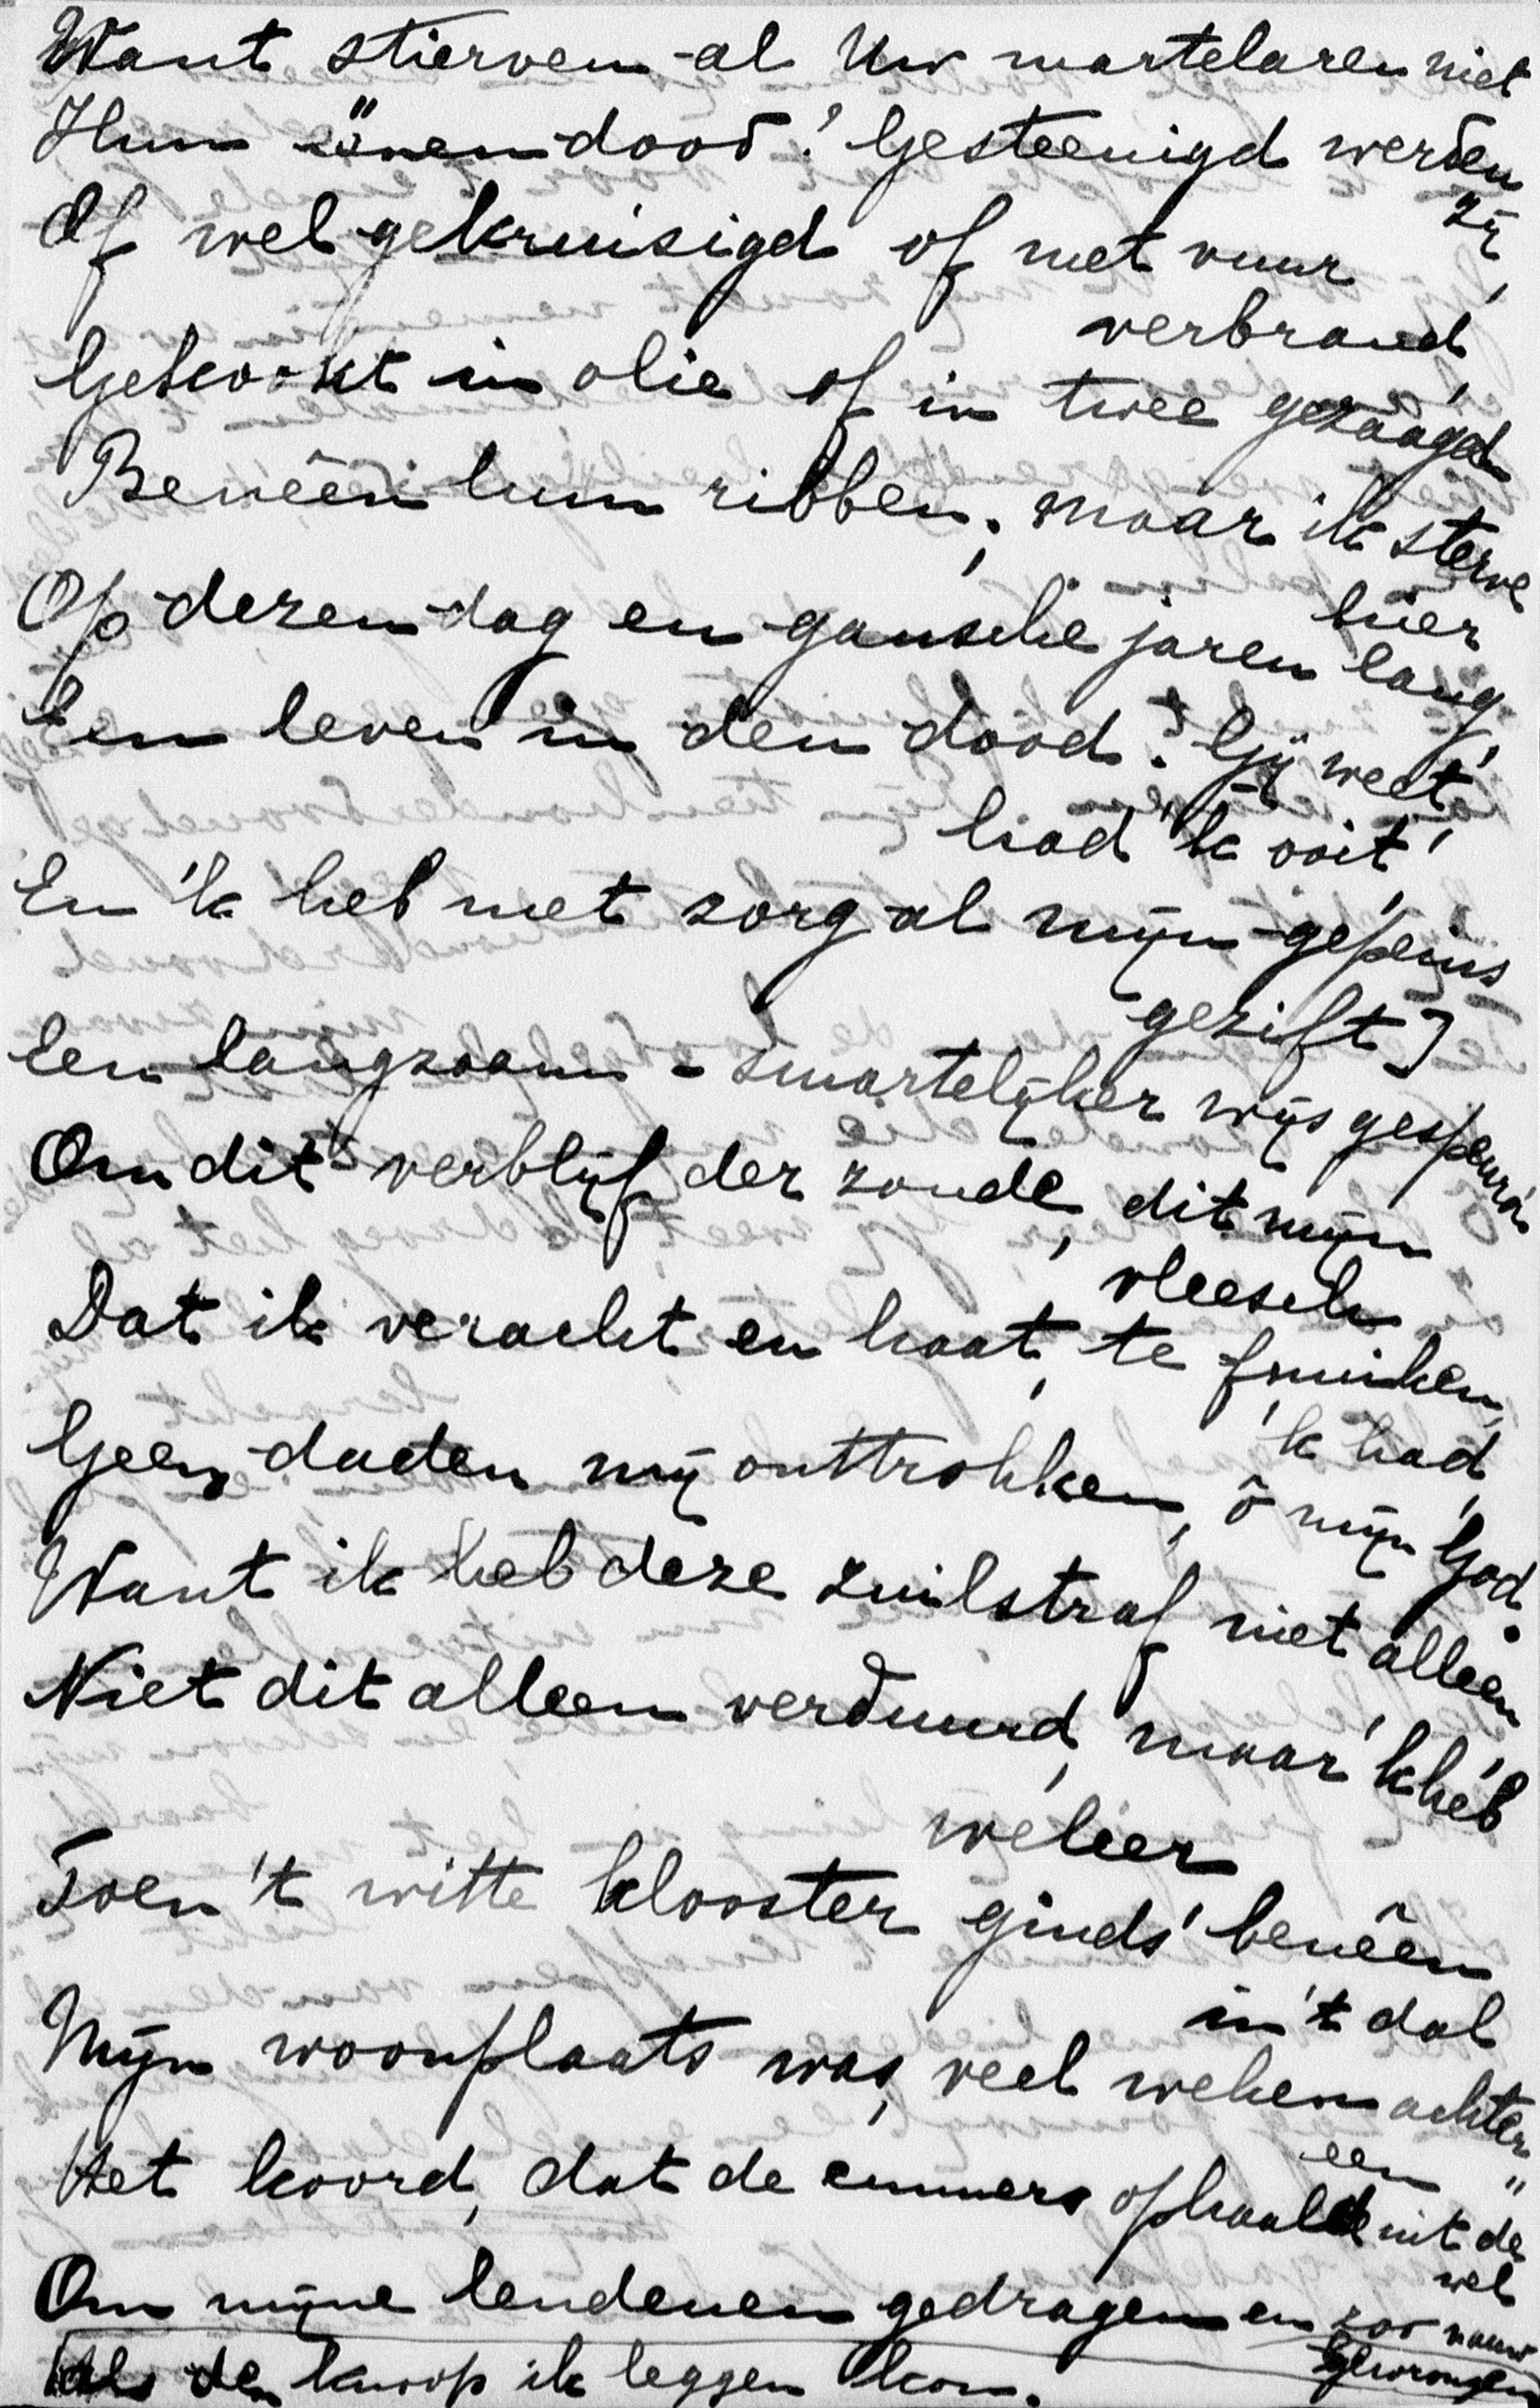 Want stierven al Uw martelaren niet
Hun éénen dood? Gesteenigd werden
zij,
Of wel gekruisigd of met vuur
verbrand,
Gekookt in olie of in twee gezaagd
Benêên hun ribben; maar ik sterve
hier
Op dezen dag en gansche jaren lang,
Een leven in den dood. Gij weet,
had 'k ooit,
En 'k heb met zorg al mijn gepeins
gezift]
Een langzaam-smartelijker wijs gespeurd
Om dit verblijf der zonde, dit mijn
vleesch
Dat ik veracht en haat, te fnuiken,
'k had,
Geen daden mij onttrokken, ô mijn God.
Want ik heb deze zuilstraf niet alleen
Niet dit alleen verduurd, maar 'k heb
weleer
Toen 't witte klooster ginds benêên
in 't dal
Mijn woonplaats was, veel weken achter
een
Het koord, dat de emmers ophaalde uit de
wel
Om mijne lendenen gedragen en zoo nauw
Gewrongen
Als den knoop ik leggen kon.